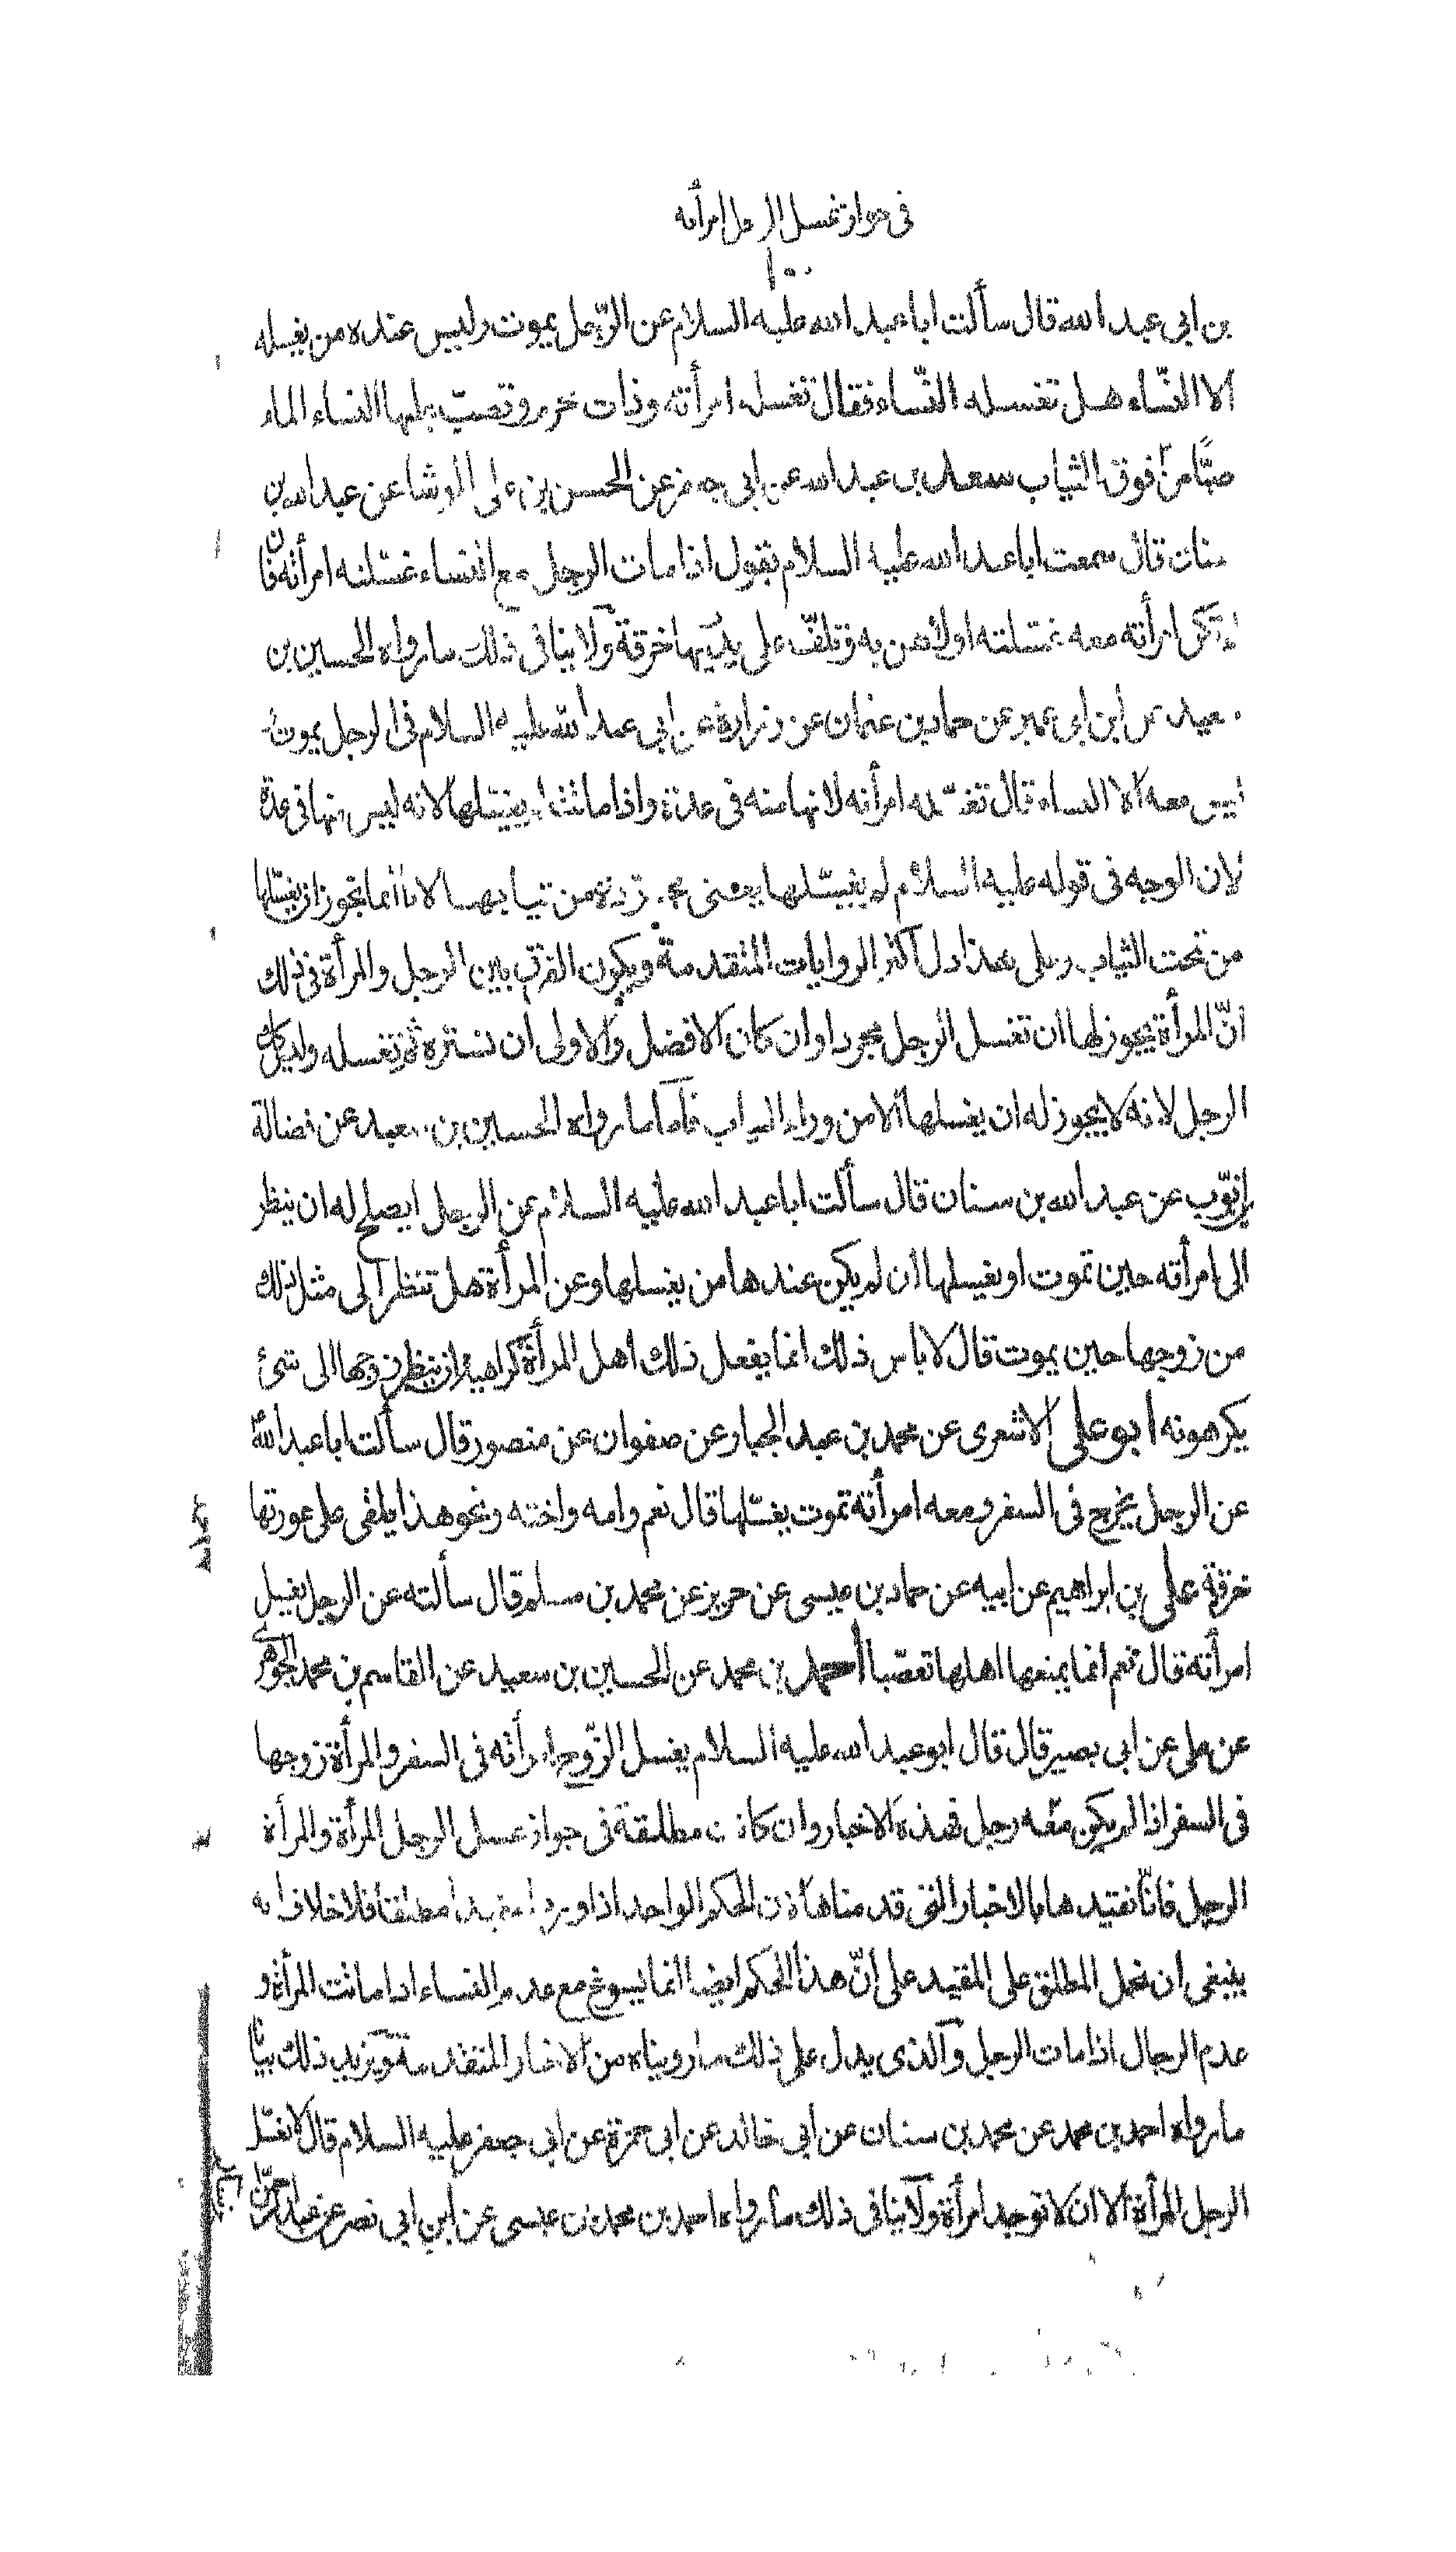 في جواز تغسيل الرجل امرأته
بن ابي عبد الله قال سألت ابا عبد الله عليه السلام عن الرّجل يموت وليس عنده من يغسله
الا النّساء هل تغسله النّساء فقال تغسله امرأته وذات محرم وتصبّ عليها النساء الماء
صبّا من فوق الثياب سعد بن عبد الله عن ابي جعفر عن الحسن بن على الوشا عن عبد الله بن
سنان قال سمعت ابا عبد الله عليه السلام يقول اذا مات الرجل مع النساء غسّلته امرأته فان
لم تكن امرأته معه غسّلته اولاهن به وتلفّ على يديها خرقة ولا ينافى ذلك ما رواه الحسين بن
سعيد عن ابن ابى عمير عن حماد بن عثمان عن زرارة عن ابي عبد الله عليه السلام فى الرجل يموت
ليس معه الا النساء قال تغسّله امرأته لانها منه فى عدة واذا ماتت لم يغسّلها لانه ليس منها فى عدة
لان الوجه فى قوله عليه السلام لم يغسّلها يعنى مجردة من ثيابها لانا انما نجوز ان يغسّلها
من تحت الثياب وعلى هذا دل اكثر الروايات المتقدمة ويكون الفرق بين الرجل والمرأة فى ذلك
انّ المرأة يجوز لها ان تغسل الرجل مجردا وان كان الافضل والاولى ان تستره ثم تغسله وليس كذلك
الرجل لانه لا يجوز له ان يغسلها الا من وراء الثياب فأما ما رواه الحسين بن سعيد عن فضالة
بن ايّوب عن عبد الله بن سنان قال سألت ابا عبد الله عليه السلام عن الرجل ايصلح له ان ينظر
الى امرأته حين تموت او يغسلها ان لم يكن عندها من يغسلها وعن المرأة هل تنظر الى مثل ذلك
من زوجها حين يموت قال لا باس ذلك انما يفعل ذلك اهل المرأة كراهية ان ينظر زوجها الى شئ
يكرهونه ابو على الاشعرى عن محمد بن عبد الجبار عن صفوان عن منصور قال سألت ابا عبد الله
عن الرجل يخرج فى السفر ومعه امرأته تموت يغسّلها قال نعم وامه واخته ونحو هذا يلقى على عورتها
خرقة على بن ابراهيم عن ابيه عن حماد بن عيسى عن حريز عن محمد بن مسلم قال سألته عن الرجل يغسل
امرأته قال نعم انما يمنعها اهلها تعصّبا احمد بن محمد عن الحسين بن سعيد عن القاسم بن محمد الجوهرى
عن على عن ابى بصير قال قال ابو عبد الله عليه السلام يغسل الزّوج امرأته فى السفر والمرأة زوجها
فى السفر اذا لم يكن معه رجل فهذه الاخبار وان كانت مطلقة فى جواز غسل الرجل المرأة والمرأة
الرجل فانّا نقيّدها بالاخبار التى قد مناها لان الحكم الواحد اذا ورد مقيدا مطلقا فلا خلاف انه
ينبغى ان نحمل المطلق على المقيد على انّ هذا الحكم ايضا انما يسوغ مع عدم النساء اذا ماتت المرأة و
عدم الرجال اذا مات الرجل والذى يدل على ذلك ما رويناه من الاخبار المتقدمة ويزيد ذلك بيانا
ما رواه احمد بن محمد عن محمد بن سنان عن ابي خالد عن ابى حمزة عن ابى جعفر عليه السلام قال لا يغسّل
الرجل المرأة الا ان لا توجد امرأة ولا ينافى ذلك ما رواه احمد بن محمد بن عيسى عن ابن ابى نصر عن عبد الرحمن